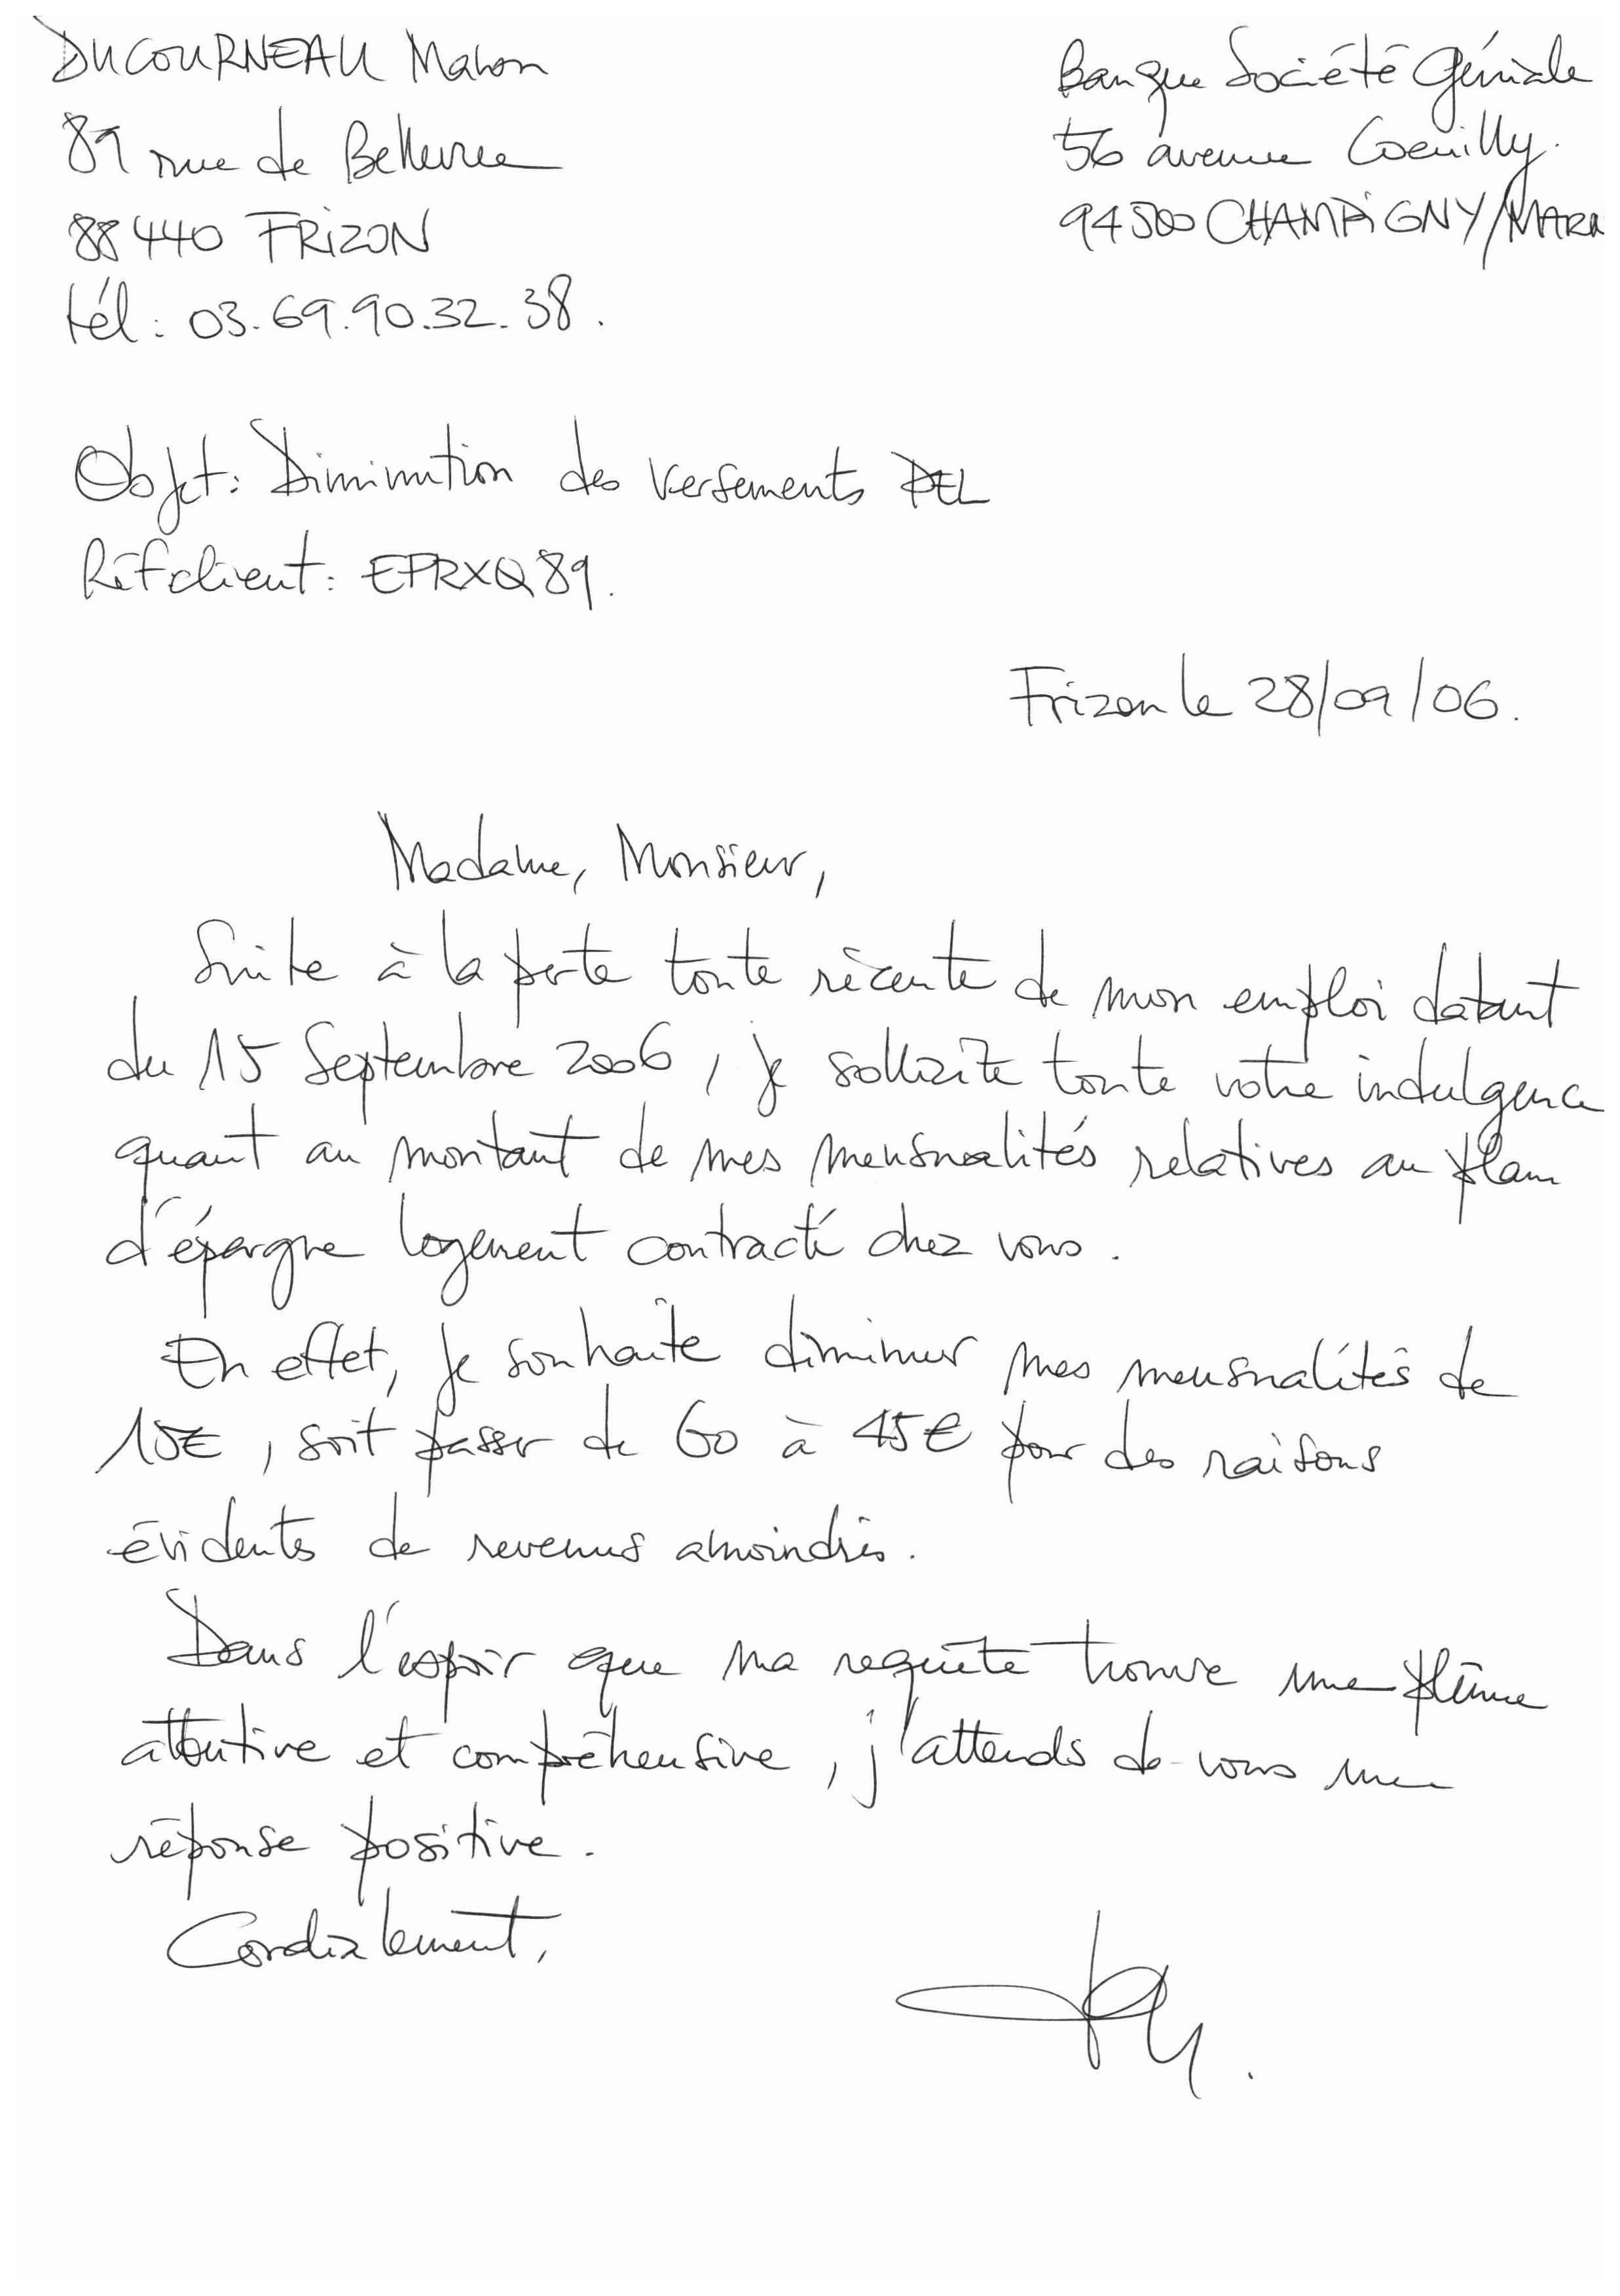 DUCOURNEAU Mahon
89 rue de Bellevue
88440 FRIZON
tél : 03.69.90.32.38.
Banque Société Géniale
56 avenue Coeuilly.
94500 CHAMPIGNY/MARN
Objet : Diminution des versements PEL
Réf client : EFRXQ89.
Frizon le 28/09/06.
Madame, Monsieur,
Suite à la perte toute récente de mon emploi datant
du 15 Septembre 2006, je sollicite toute votre indulgence
quant au montant de mes mensualités relatives au plan
d'épargne logement contracté chez vous.
En effet, je souhaite diminuer mes mensualités de
15€, soit passer de 60 à 45€ pour des raisons
évidentes de revenus amoindris.
Dans l'espoir que ma requête trouve une
attentive et compréhensive, j'attends de vous une
réponse positive.
Cordialement,